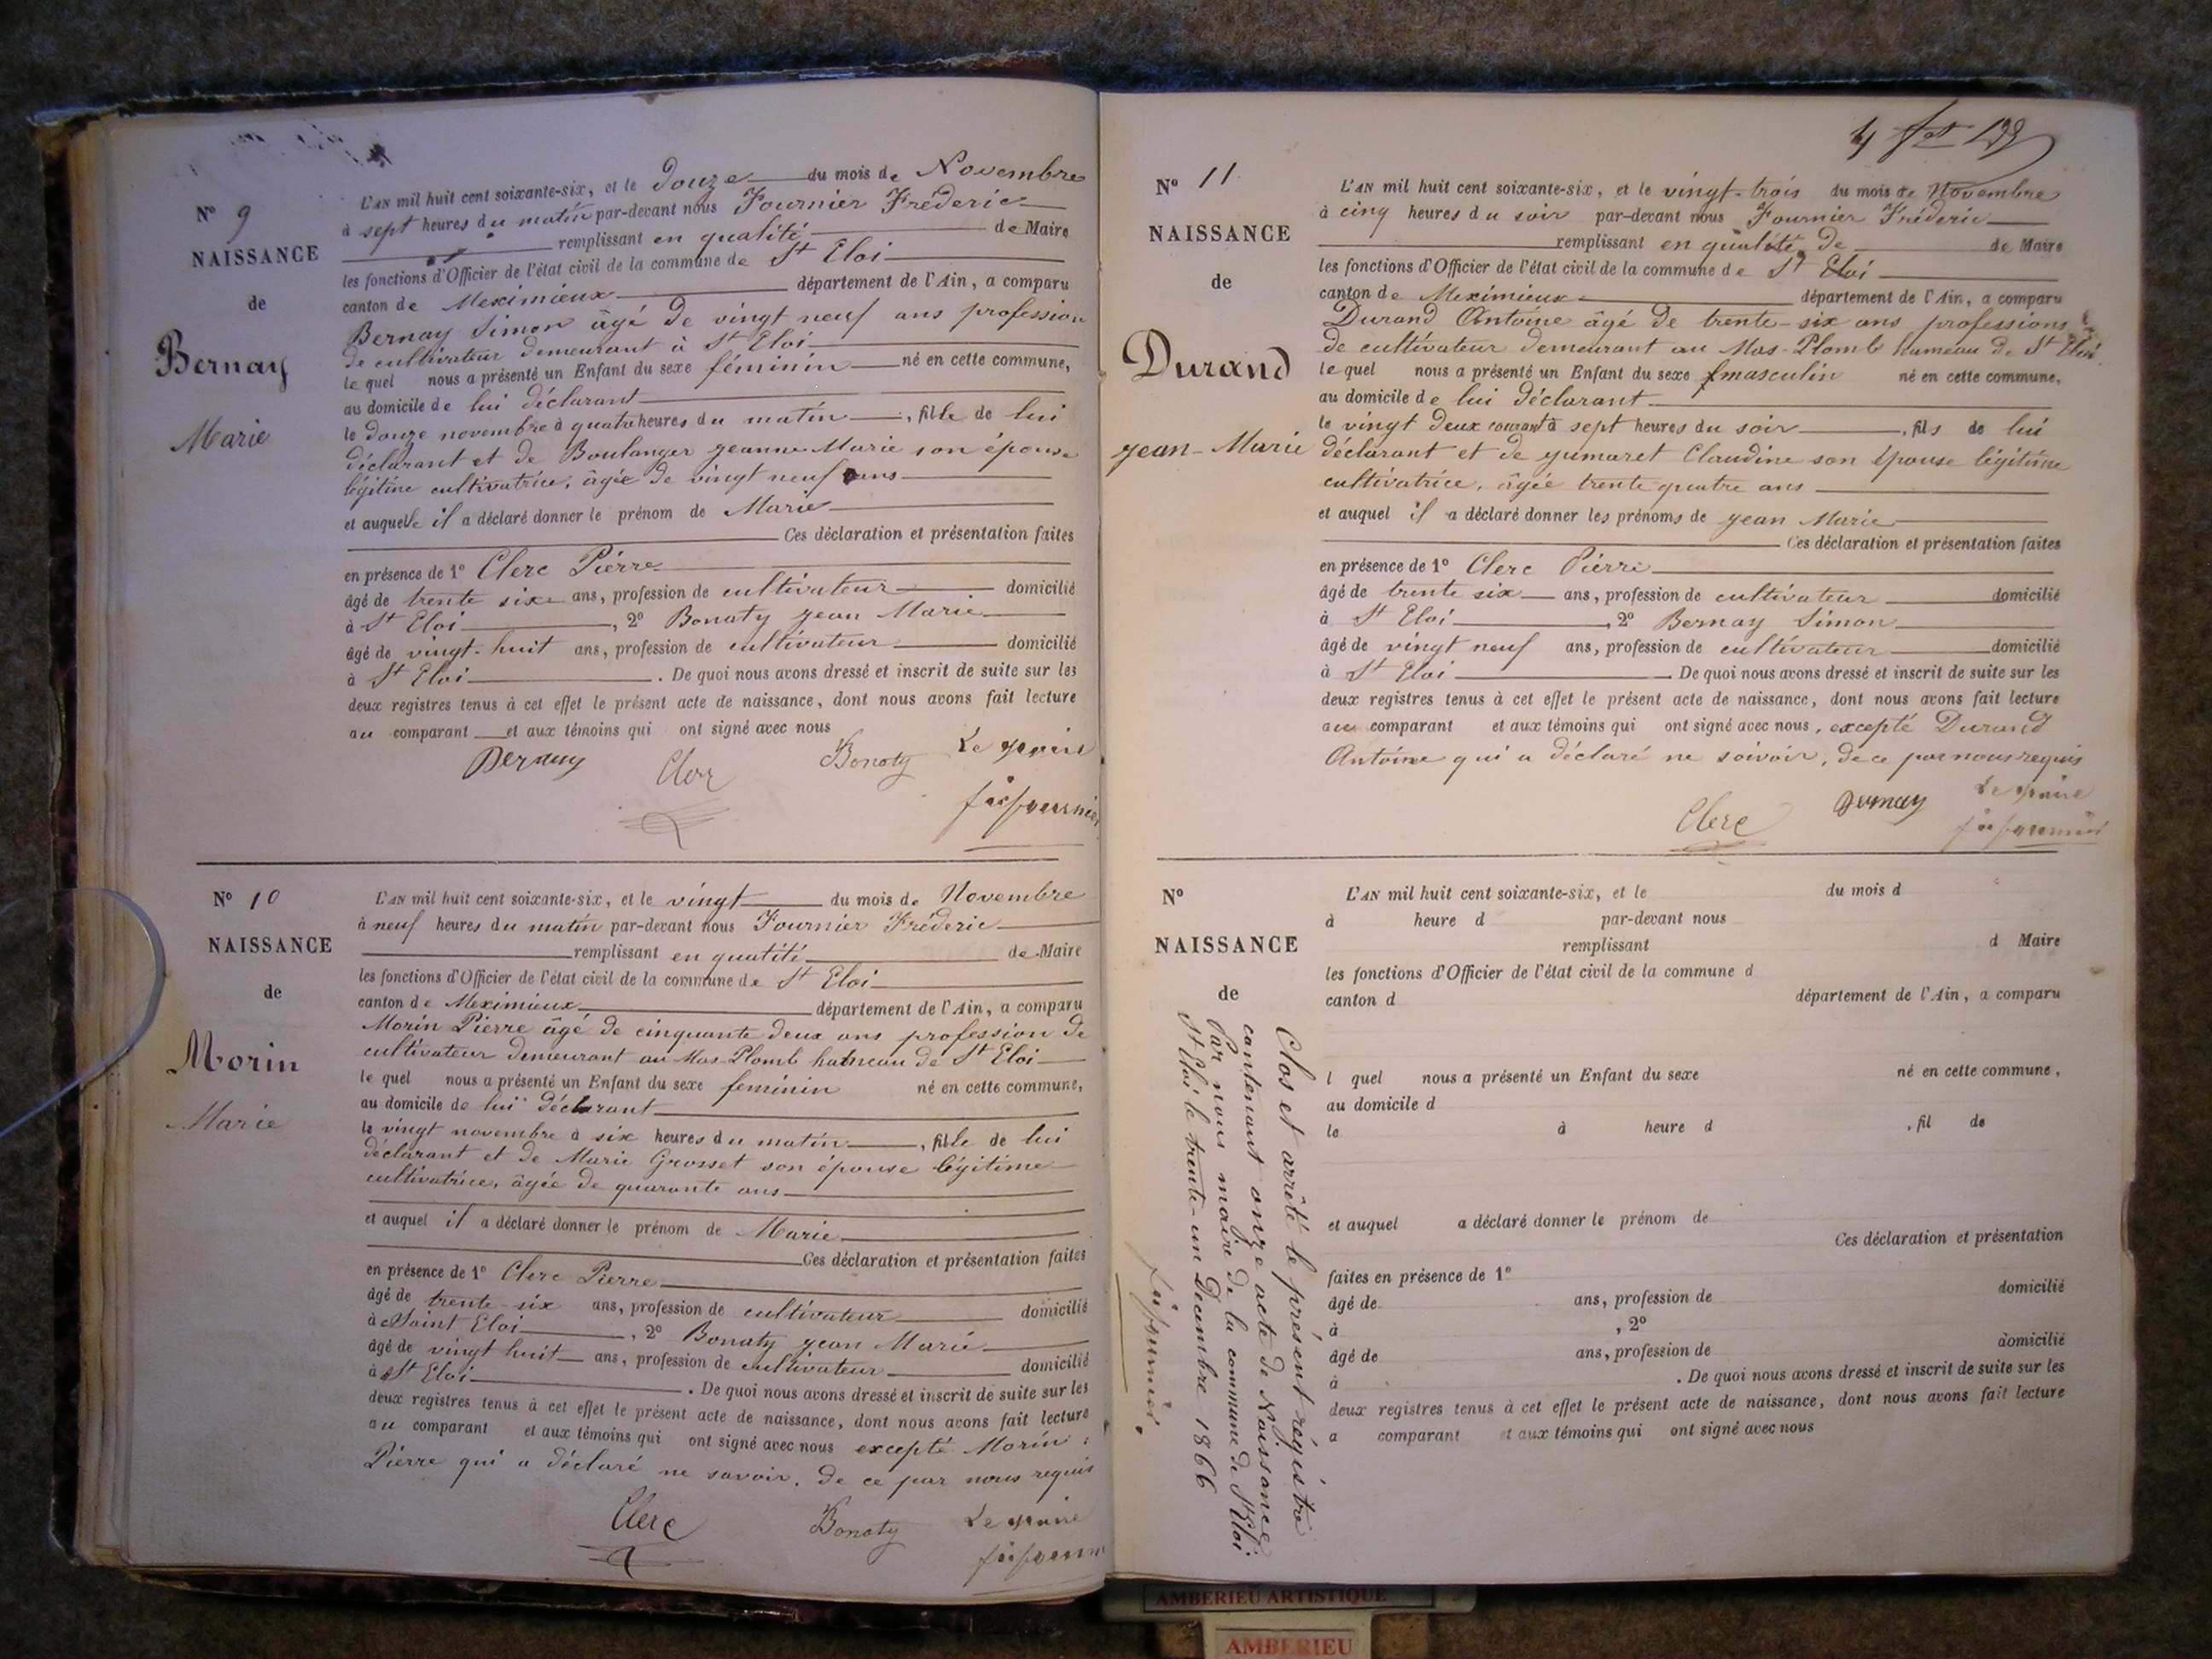 Nº 9
NAISSANCE
de
Bernay
Marie
L'AN mil huit cent soixante-six, et le Douze du mois de Novembre
à sept heures du matin par-devant nous Fournier Fréderic
remplissant en qualité de Maire
les fonctions d'Officier de l'état civil de la commune de St Eloi
canton de Meximieux département de l'Ain, a comparu
Bernay Simon âgé de vingt neuf ans profession
de cultivateur demeurant à St Eloi
le quel nous a présenté un Enfant du sexe féminin né en cette commune,
au domicile de lui déclarant
le douze novembre à quatre heures du matin, fille de lui
déclarant et de Boulanger jeanne Marie son épouse
légitine cultivatrice, âgée de vingt neuf ans
et auquelle il a déclaré donner le prénom de Marie
Ces déclaration et présentation faites
en présence de 1º Clerc Pierre
âgé de trente six ans, profession de cultivateur domicilié
à St Eloi, 2º Bonaty jean Marie
âgé de vingt-huit ans, profession de cultivateur domicilié
à St Eloi. De quoi nous avons dressé et inscrit de suite sur les
deux registres tenus à cet effet le présent acte de naissance, dont nous avons fait lecture
au comparant et aux témoins qui ont signé avec nous
Bernay Clerc Bonaty Le maire
Nº 10
NAISSANCE
de
Morin
Marie
L'AN mil huit cent soixante-six, et le vingt du mois de Novembre
à neuf heures du matin par-devant nous Fournier Fréderic
remplissant en qualité de Maire
les fonctions d'Officier de l'état civil de la commune de St Eloi
canton de Meximieux département de l'Ain, a comparu
Morin Pierre âgé de cinquante deux ans profession de
cultivateur demeurant au Mas-Plomb hameau de St Eloi
le quel nous a présenté un Enfant du sexe feminin né en cette commune,
au domicile de lui déclarant
le vingt novembre à six heures du matin, fille de lui
déclarant et de Marie Grosset son épouse légitime
cultivatrice, âgée de quarante ans
et auquel il a déclaré donner le prénom de Marie
Ces déclaration et présentation faites
en présence de 1º Clerc Pierre
âgé de trente-six ans, profession de cultivateur domicilié
à Saint Eloi, 2º Bonaty jean Marie
âgé de vingt huit ans, profession de cultivateur domicilié
à St Eloi. De quoi nous avons dressé et inscrit de suite sur les
deux registres tenus à cet effet le présent acte de naissance, dont nous avons fait lecture
au comparant et aux témoins qui ont signé avec nous excepté Morin
Pierre qui a déclaré ne savoir, de ce par nous requis
Clerc Bonaty Le maire
Nº 11
NAISSANCE
de
Durand
jean-Marie
L'AN mil huit cent soixante-six, et le vingt-trois du mois de Novembre
à cinq heures du soir par-devant nous Fournier Fréderic
remplissant en qualité de de Maire
les fonctions d'Officier de l'état civil de la commune de St Eloi
canton de Meximieux département de l'Ain, a comparu
Durand Antoine âgé de trente-six ans professions
de cultivateur demeurant au Mas-Plomb hameau de St Eloi
le quel nous a présenté un Enfant du sexe masculin né en cette commune,
au domicile de lui déclarant
le vingt deux courant à sept heures du soir, fils de lui
déclarant et de jumaret Claudine son épouse légitime
cultivatrice, âgée trente quatre ans
et auquel il a déclaré donner les prénoms de jean Marie
Ces déclaration et présentation faites
en présence de 1º Clerc Pierre
âgé de trente six ans, profession de cultivateur domicilié
à St Eloi, 2º Bernay Simon
âgé de vingt neuf ans, profession de cultivateur domicilié
à St Eloi. De quoi nous avons dressé et inscrit de suite sur les
deux registres tenus à cet effet le présent acte de naissance, dont nous avons fait lecture
au comparant et aux témoins qui ont signé avec nous, excepté Durand
Antoine qui a déclaré ne soivoir, de ce par nous requis
Clerc Bernay Le maire
Nº
NAISSANCE
de
L'AN mil huit cent soixante-six, et le du mois d
à heure d par-devant nous
remplissant d Maire
les fonctions d'Officier de l'état civil de la commune d
canton d département de l'Ain, a comparu
l quel nous a présenté un Enfant du sexe né en cette commune,
au domicile d
le à heure d, fil de
et auquel a déclaré donner le prénom de
Ces déclaration et présentation
faites en présence de 1º
âgé de ans, profession de domicilié
à, 2º
âgé de ans, profession de domicilié
à. De quoi nous avons dressé et inscrit de suite sur les
deux registres tenus à cet effet le présent acte de naissance, dont nous avons fait lecture
a comparant et aux témoins qui ont signé avec nous
Clos et arrêté le présent régistre
contenant onze acte de Naissance
Par nous maire de la commune de St Eloi
St Eloi le trente-un Decembre 1866
AMBERIEU ARTISTIQUE
AMBERIEU